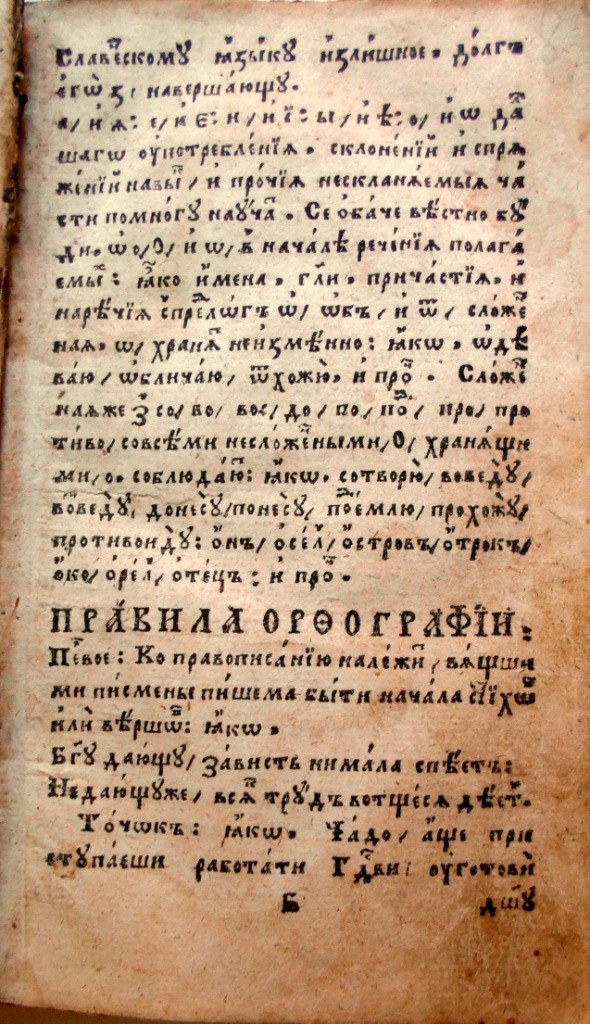 Славе́нскому ꙗ҆зы́ку и҆зли́шное. до́лгъ
є҆гѡ̀ ꙁ: наверша́ющу.
а/ и҆ ѧ: е/ и҆ є: и/ и҆ і: ы/ и҆ ѣ: о/ и҆ ѡ да
шагѡ ᲂу҆потребле́нїѧ. склоне́нїй и҆ спрѧ
же́нїй навы́/ и҆ про́чїѧ несклонѧ́емыѧ ча́
сти помно́гу нау́ча. Се ѻ҆ба́че вѣ́стно бу́
ди. ѡ҆ о/ Ѻ/ и҆ ѡ/ в̾ нача́лѣ рече́нїѧ полага́
емы: ꙗ҆́ко и҆́мена. гл҃и. прича́стїѧ. и҆
нарѣ́чїѧ с̾пре́длѡгъ ѡ҆/ ѡ҆бъ/ и҆ ѿ/ сло́же
наѧ. ѡ/ хранѧ́ неи҆змѣ́нно: ꙗ҆́кѡ. ѡ҆дѣ
ва́ю/ ѡ҆блича́ю/ ѿхожю̀. и҆ про́. Сло́же
наѧже з̾ со/ во/ воз/ до/ по/ под/ про/ про
ти́во/ совсѣ́ми несло́жеными/ Ѻ/ хранѧ́щи
ми/ о. соблюда́ю: ꙗ҆́кѡ. сотворю̀/ воведу̀/
возведу̀, донесу̀/понесу̀/ под̾е́млю/ прохожу̀/
противоиду̀: ѻ҆́нъ/ ѻ҆се́л/ ѻ҆́стровъ/ ѻ҆́трокъ/
ѻ҆́ко/ ѻ҆ре́л/ ѻ҆те́цъ: и҆ про́.
ПРА́ВИЛА ОРѲОГРА́ФІИ:
Пе́рвое: Ко правописа́нїю належи́/ вѧ́щши
ми пи́смены пи́шема бы́ти нача́ла сти́хѡ
и҆лѝ ве́ршѡ: ꙗ҆́кѡ.
Бг҃у даю́щу/ за́висть нима́ла спѣ́етъ:
Недаю́щуже/ всѧ́ трꙋ́дъ вотще́сѧ дѣ́ет.
То́чѡкъ: ꙗ҆́кѡ. Ча́до/ а҆́ще при
ступа́еши рабо́тати Гдⷭ҇ви: ᲂу҆гото́ви
Б дш҃у